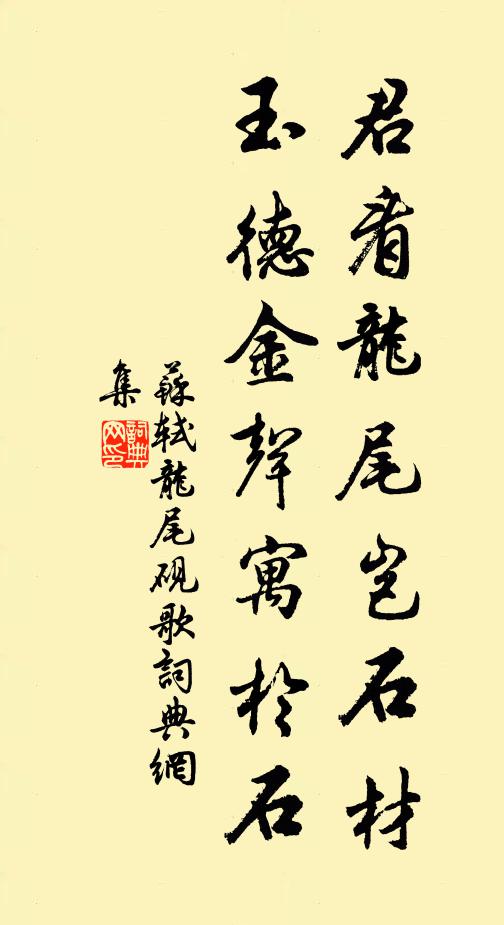 君看龍尾豈石材
玉德金聲寓於石
蘇軾龍尾硯歌詞典網
集
詞典
网印